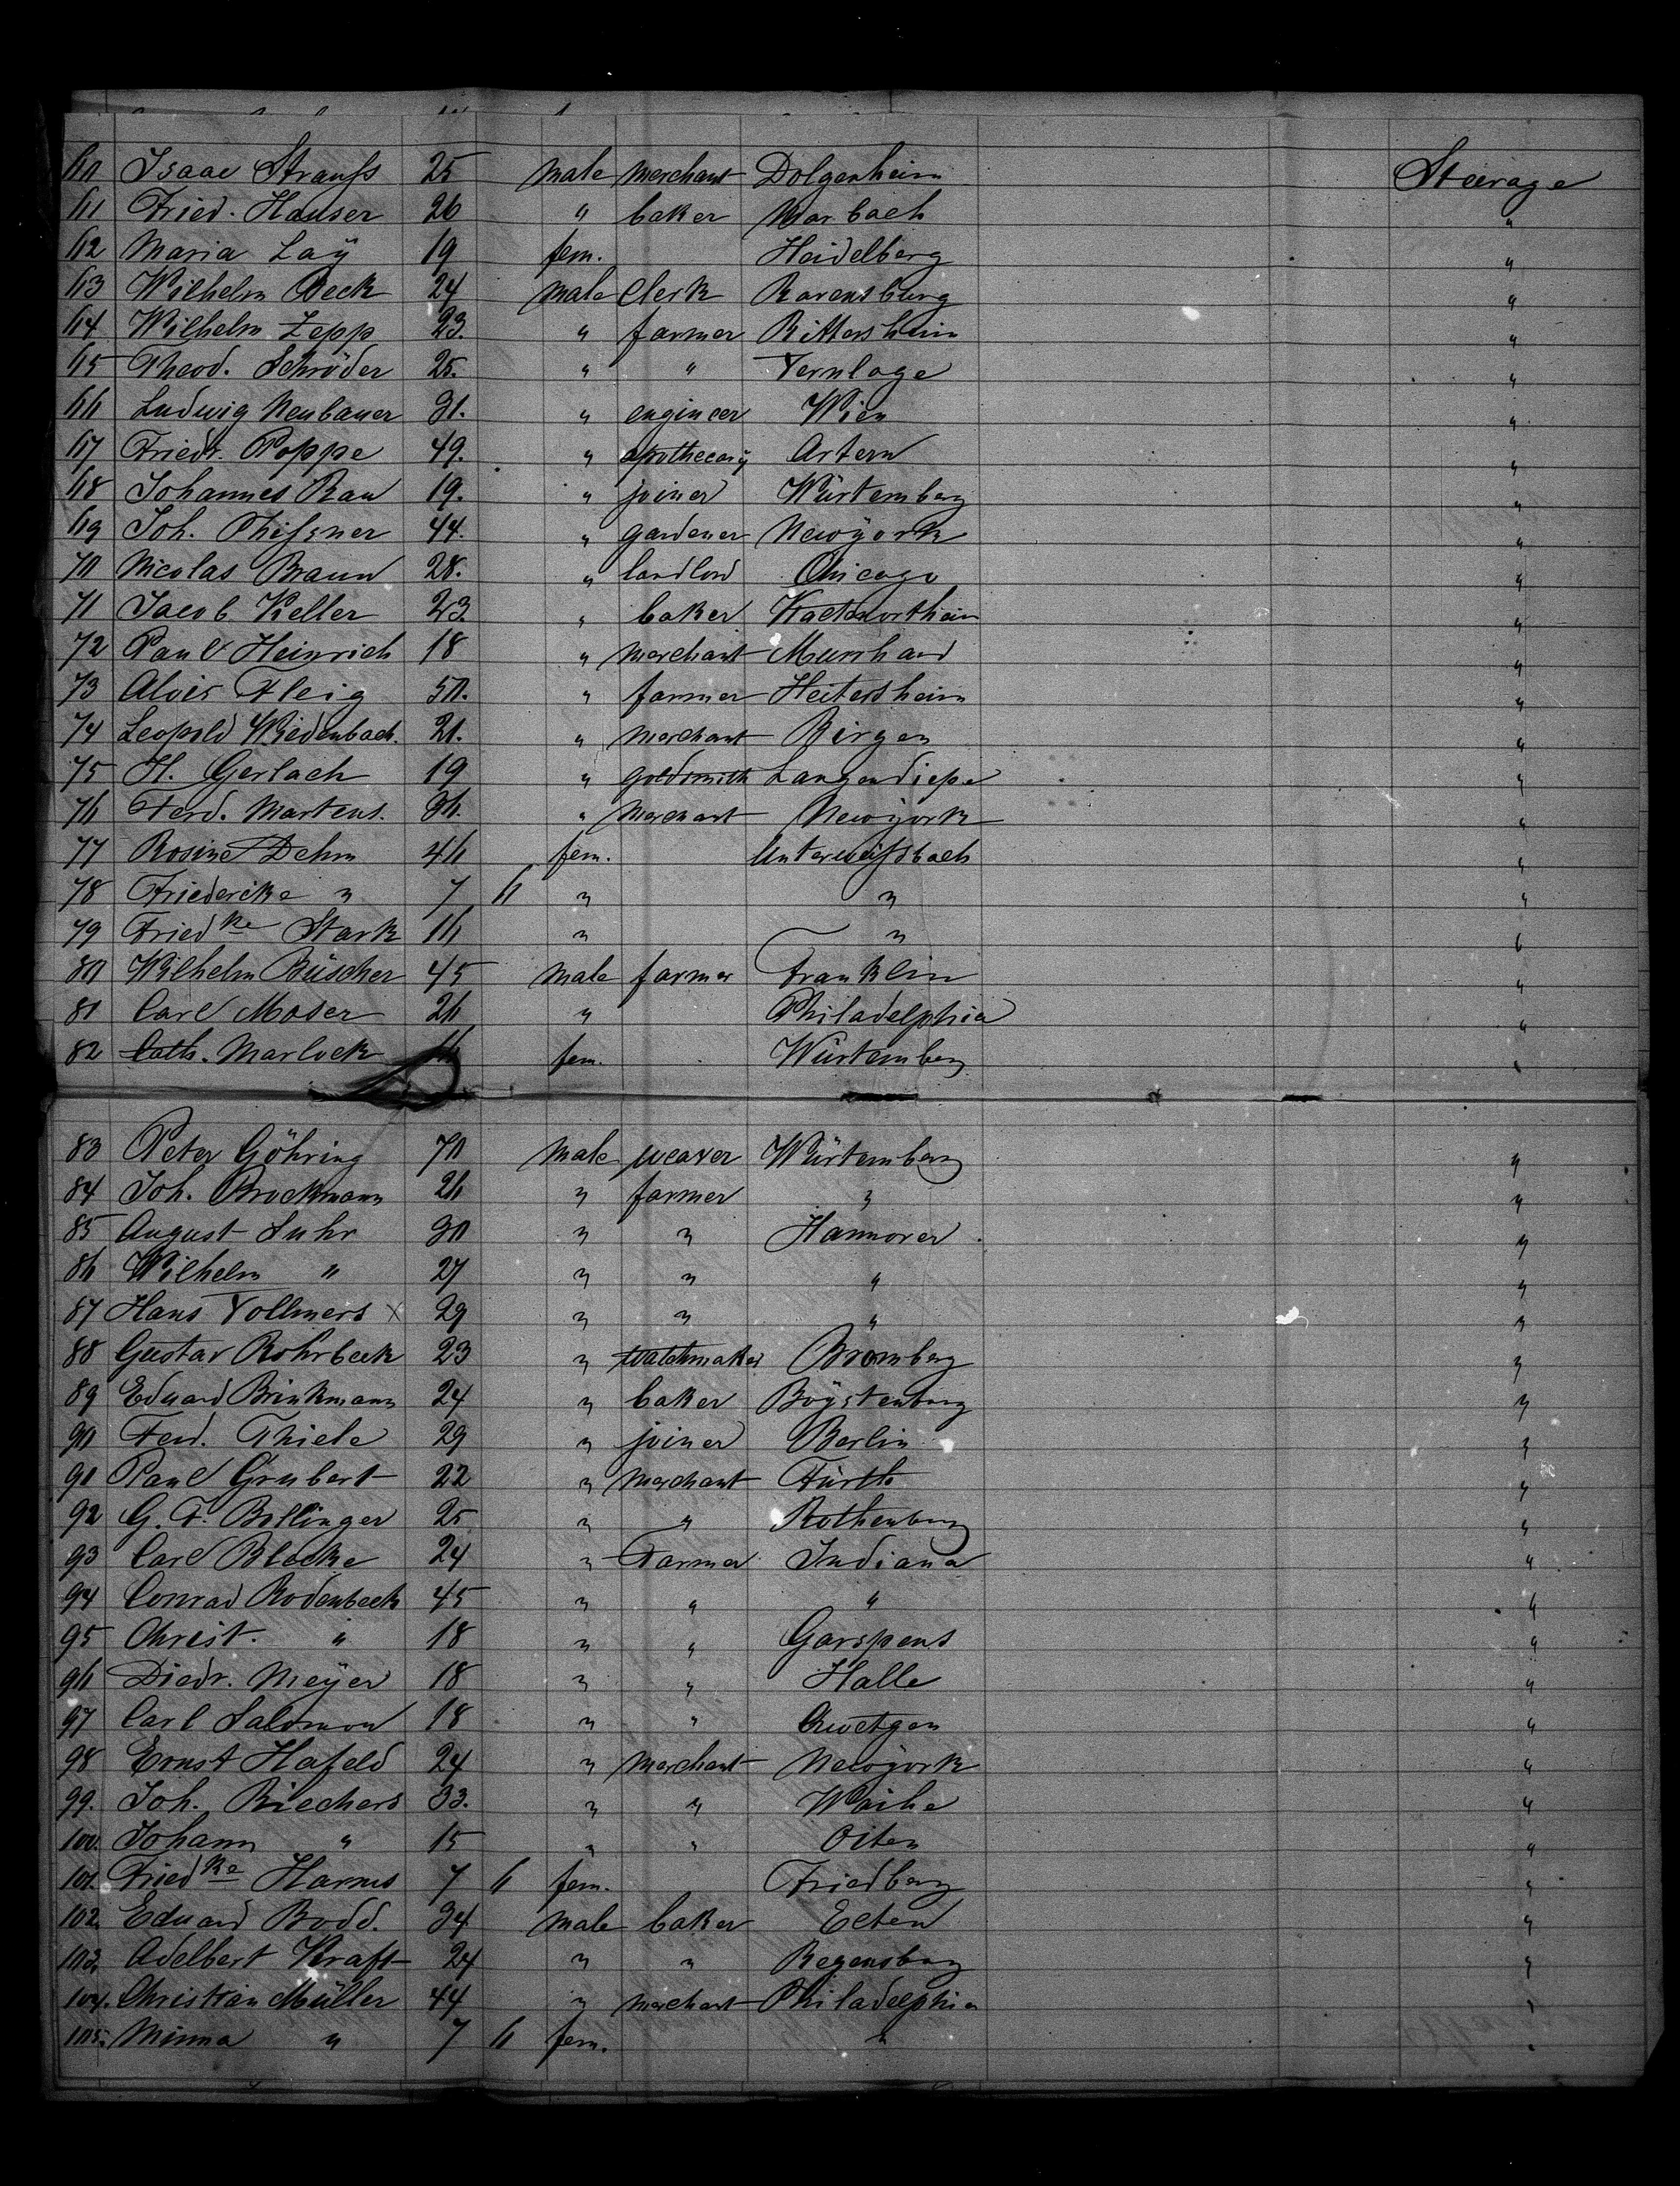 60 Isaac Strauſs 25 male merchant Dolgenheim Steerage
61 Fried. Hauser 26 " baker Marbach "
62 Maria Laÿ 19 fem. Heidelberg "
63 Wilhelm Beck 24 male Clerk Ravensburg "
64 Wilhelm Zepp 23. " farmer Rittersheim "
65 Theod. Schröder 25. " " Vernlage "
66 Ludwig Neubauer 31. " engineer Wien "
67 Friedr. Poppe 49. " apothecarÿ Artern "
68 Johannes Rau 19. " joiner Würtemberg "
69 Joh. Thiſsner 44. " gardener Newÿork "
70 Nicolas Braun 28. " landlord Chicago "
71 Jacob Keller 23. " baker "
72 Paul Heinrich 18 " merchant Murrhard "
73 Alois Fleig 50. " farmer Heitersheim "
74 Leopold Wiedenbach. 21. " merchant Birgen "
75 H. Gerlach 19 " goldsmith Langendiepe "
76 Ferd. Martens. 36. " merchant Newÿork "
77 Rosine Dehm 46 fem. Unterweiſsbach "
78 Friedericke " 7 6 " " "
79 Friedke Stark 16 " " "
80 Wilhelm Büscher 45 male farmer Franklin "
81 Carl Moser 26 " Philadelphia "
82 Cath. Marlock 16 fem. Würtemberg "
83 Peter Göhring 70 male weaver Würtemberg "
84 Joh. Brockmann 26 " farmer " "
85 August Suhr 30 " " Hannover "
86 Wilhelm " 27 " " " "
87 Hans Vollmers x 29 " " " "
88 Gustav Rohrbeck 23 " watchmaker Bromberg "
89 Eduard Brinkmann 24 " baker Böÿstenburg "
90 Ferd. Thiele 29 " joiner Berlin "
91 Paul Grubert 22 " merchant Fürth "
92 G. F. Bollinger 25 " " Rothenburg "
93 Carl Blecke 24 " Farmer Indiana "
94 Conrad Rodenbeck 45 " " " "
95 Christ. " 18 " " Garspens "
96 Diedr. Meÿer 18 " " Halle "
97 Carl Salomon 18 " " "
98 Ernst Hafeld 24 " merchant Newÿork "
99. Joh. Riechers 33. " " Weihe "
100. Johann " 15 " " Oiten "
101. Friedke Harms 7 6 fem. Friedberg "
102. Eduard Bodd. 34 male baker Elten "
103. Adelbert Kraft 24 " " Regensburg "
104. Christian Müller 44 " merchant Philadelphia "
105. Minna " 7 6 fem. " "